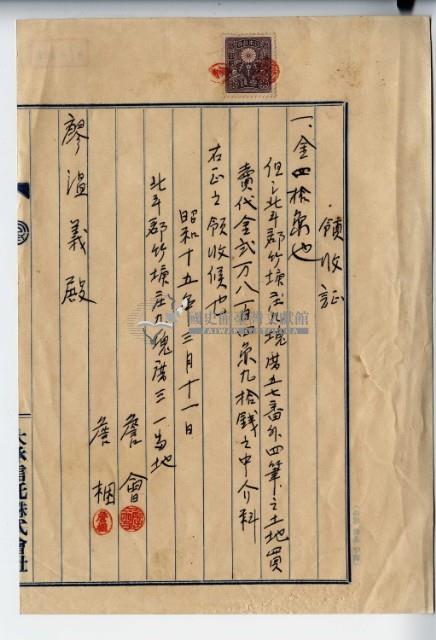 領收証
一、金四拾圓也
但シ北斗郡竹塘庄九塊厝五七番外四筆之土地買
賣代金弐万八百
九拾銭之中介料
右正ニ領收候也
昭和十五年三月十一日
北斗郡竹塘庄九塊厝三一番地
詹會
詹梱
廖溫義殿
大永信託株式會社
國史館臺灣文獻館
TAIWAN HISTORICA